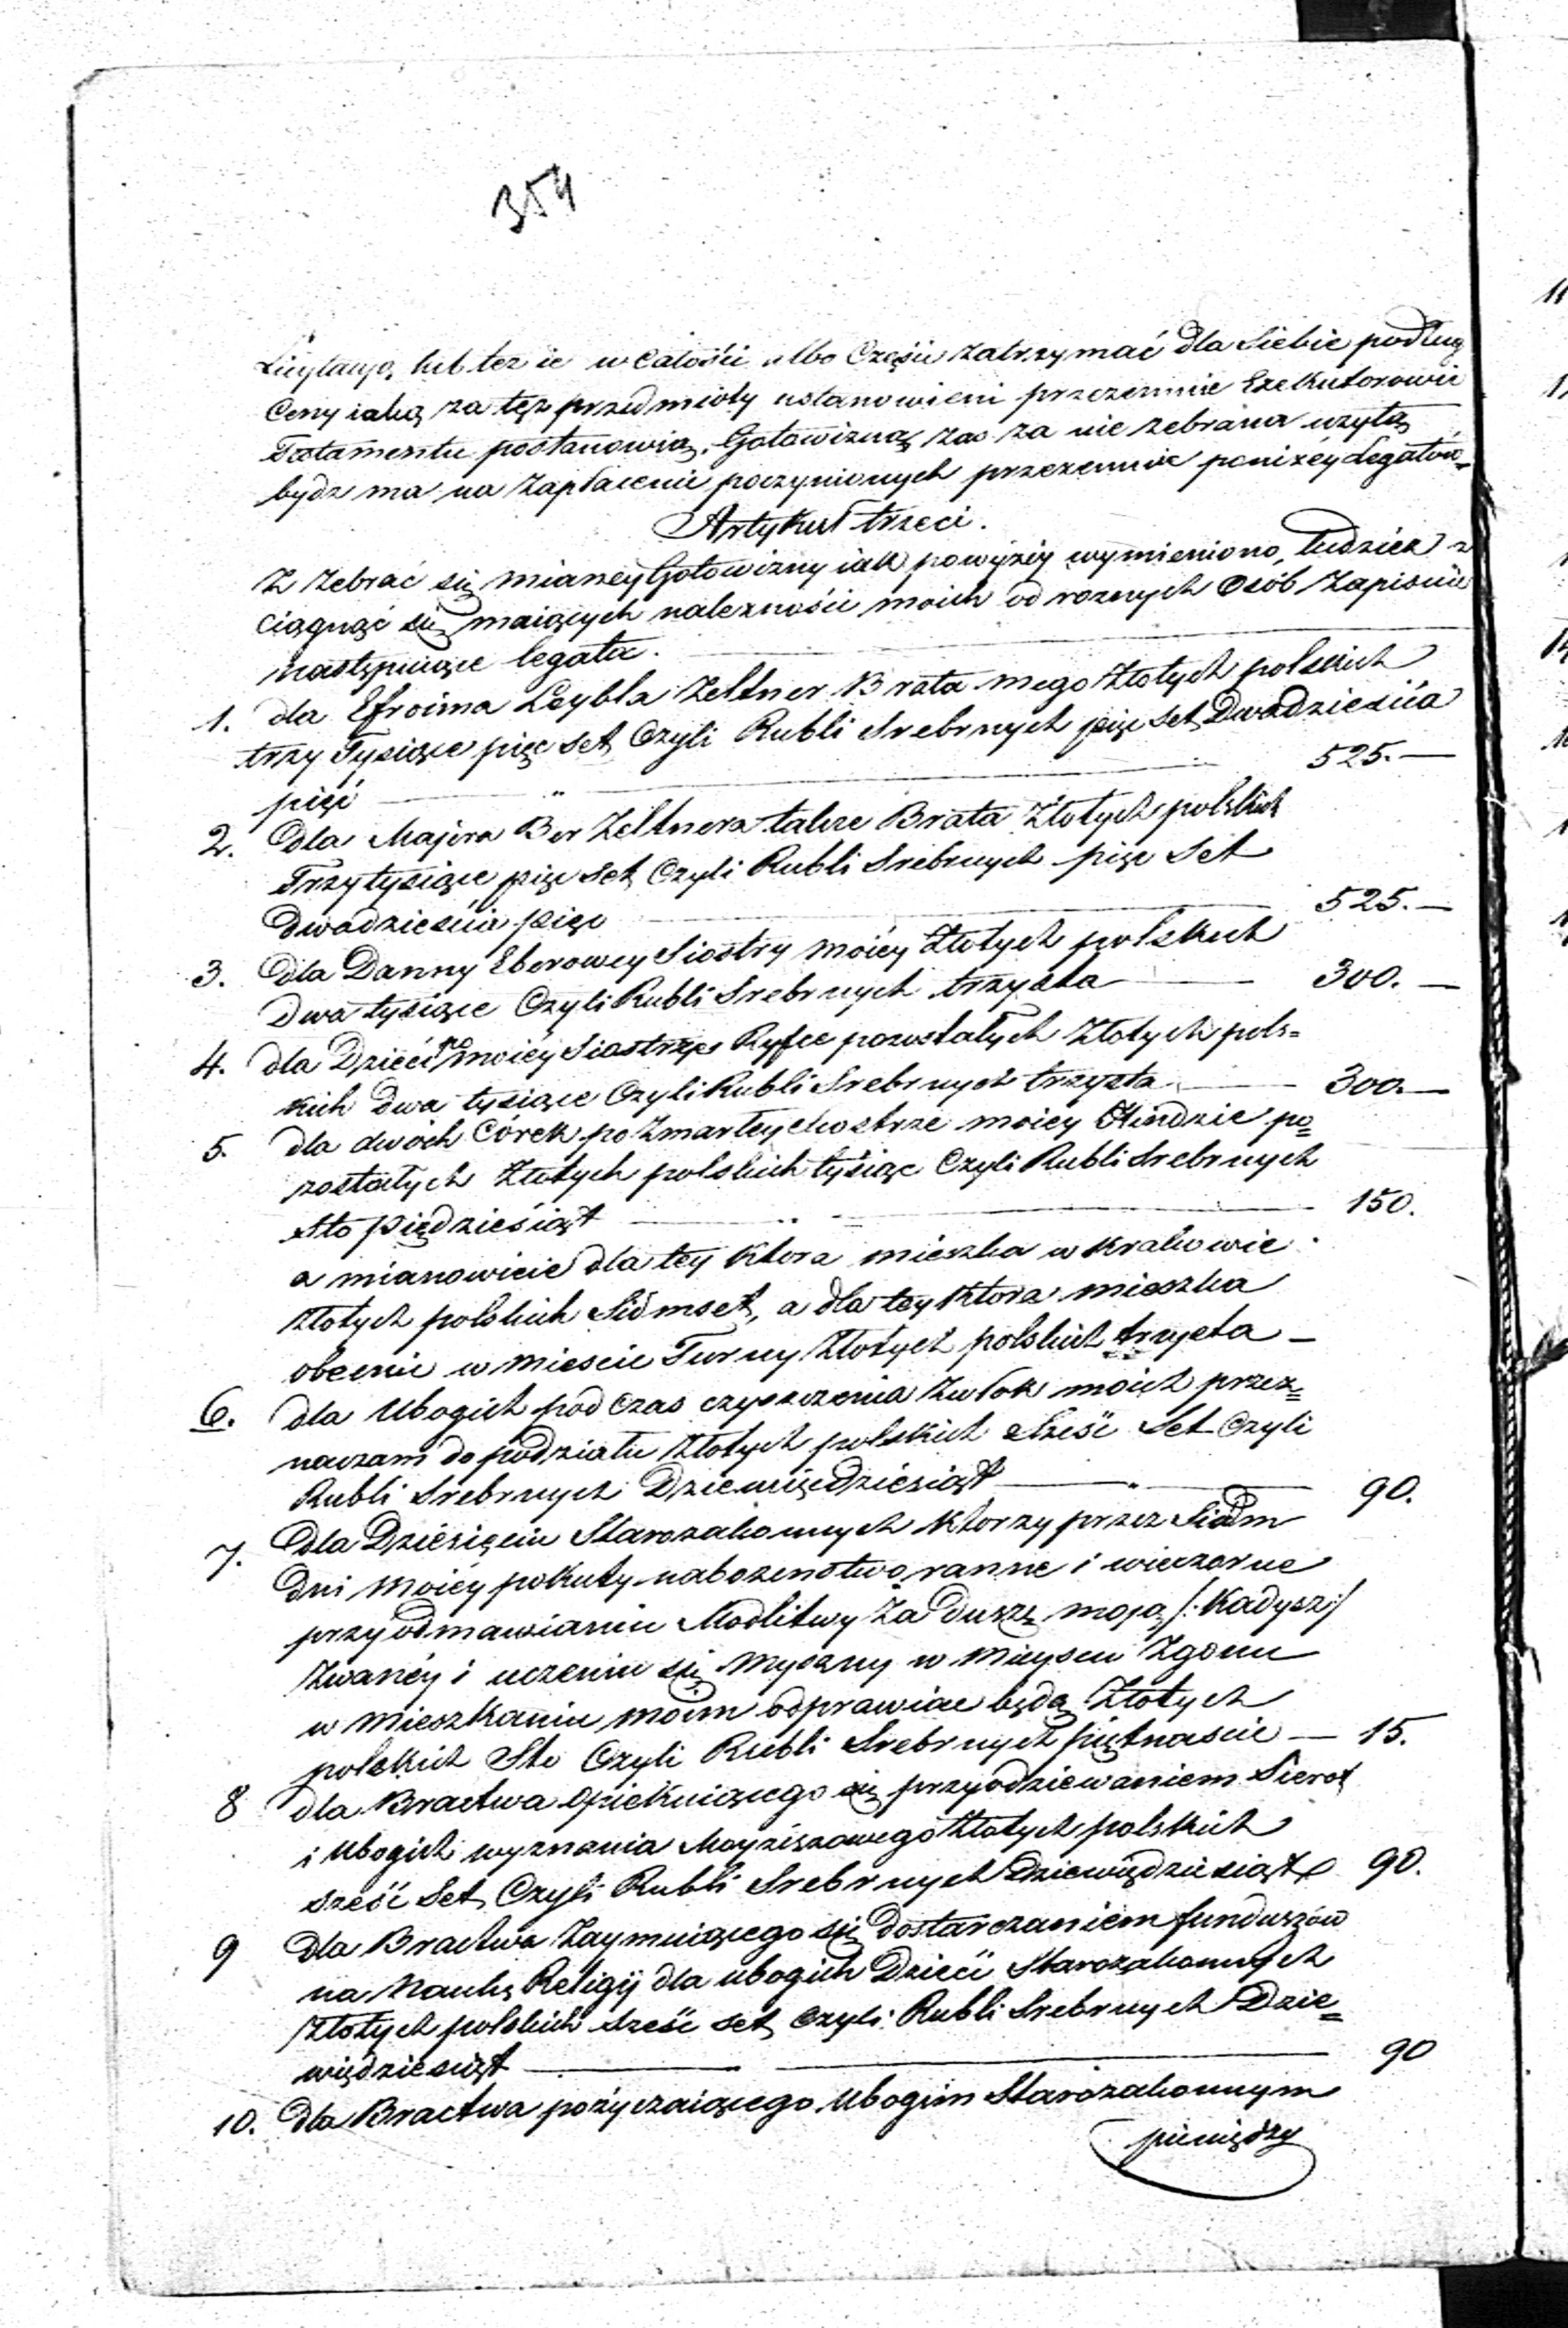 354
Licytacyą, lub też ie w całości albo Części zatrzymać dla Siebie podług
Ceny iaką za tęż przedmioty ustanowieni przezemnie Exekutorowie
Testamentu postanowią. Gotowizną zaś za nie zebrana użytą
bydz ma na zapłacenie poczynionych przezemnie poniżéy Legatów
Artykuł trzeci.
Z zebrać się mianey Gotowizny iak powyżéy wymieniono, tudzież z
ciągnąć się maiących należności moich od roznych Osób Zapisuie
następuiące legata.
1. dla Efroima Leybla Zeltner Brata mego Złotych polskich
trzy Tysiące pięc set, Czyli Rubli Srebrnych pięc set, Dwadzieścia
pięć 525.—
2. dla Majera Ber Zeltnera także Brata Złotych polskich
Trzy tysiące pięc Set, Czyli Rubli Srebrnych pięc Set
Dwadzieścia pięc 525.—
3. dla Danny Eberowey Siostry moiéy Złotych polskich
Dwa tysiące Czyli Rubli Srebrnych trzysta — 300.—
4. dla Dzieci po moiéy Siostrze Ryfce pozostałych Złotych pols=
kich Dwa tysiące Czyli Rubli Srebrnych trzysta — 300.—
5. dla dwóch Córek po Zmarłey Siostrze moiey Hindzie po=
zostałych Złotych polskich tysiąc Czyli Rubli Srebrnych
Sto piędziesiąt 150.
a mianowicie dla tey która mieszka w Krakowie
Złotych polskich Sidmset, a dla tey która mieszka
obecnie w mieście Turny Złotych polskich trzysta —
6. dla Ubogich pod czas czyszczenia zwłok moich przez=
naczam do podziału Złotych polskich Sześć Set Czyli
Rubli Srebrnych Dziewięćdziesiąt — 90.
7. dla Dziesięciu Starozakonnych którzy przez Siedm
Dni moiéy pokuty nabożenstwo ranne i wieczorne
przy odmawianiu Modlitwy za duszę moją /: Kadysz :/
Zwanéy i uczeniu się Myszny w mieyscu Zgonu
w mieszkaniu moim odprawiac będą Złotych
polskich Sto Czyli Rubli Srebrnych piętnaście — 15.
8 dla Bractwa opiekuiącego się przyodziewaniem Sierot
i Ubogich wyznania Moyżeszowego Złotych polskich
sześć Set, Czyli Rubli Srebrnych Dziewiędziesiąt 90.
9 dla Bractwa Zaymuiącego się dostarczaniem funduszów
na Naukę Religij dla ubogich Dzieci Starozakonnych
Złotych polskich sześć set, czyli Rubli Srebrnych Dzie=
więdziesiąt 90
10. dla Bractwa pożyczaiącego Ubogim Starozakonnym
pieniędzy